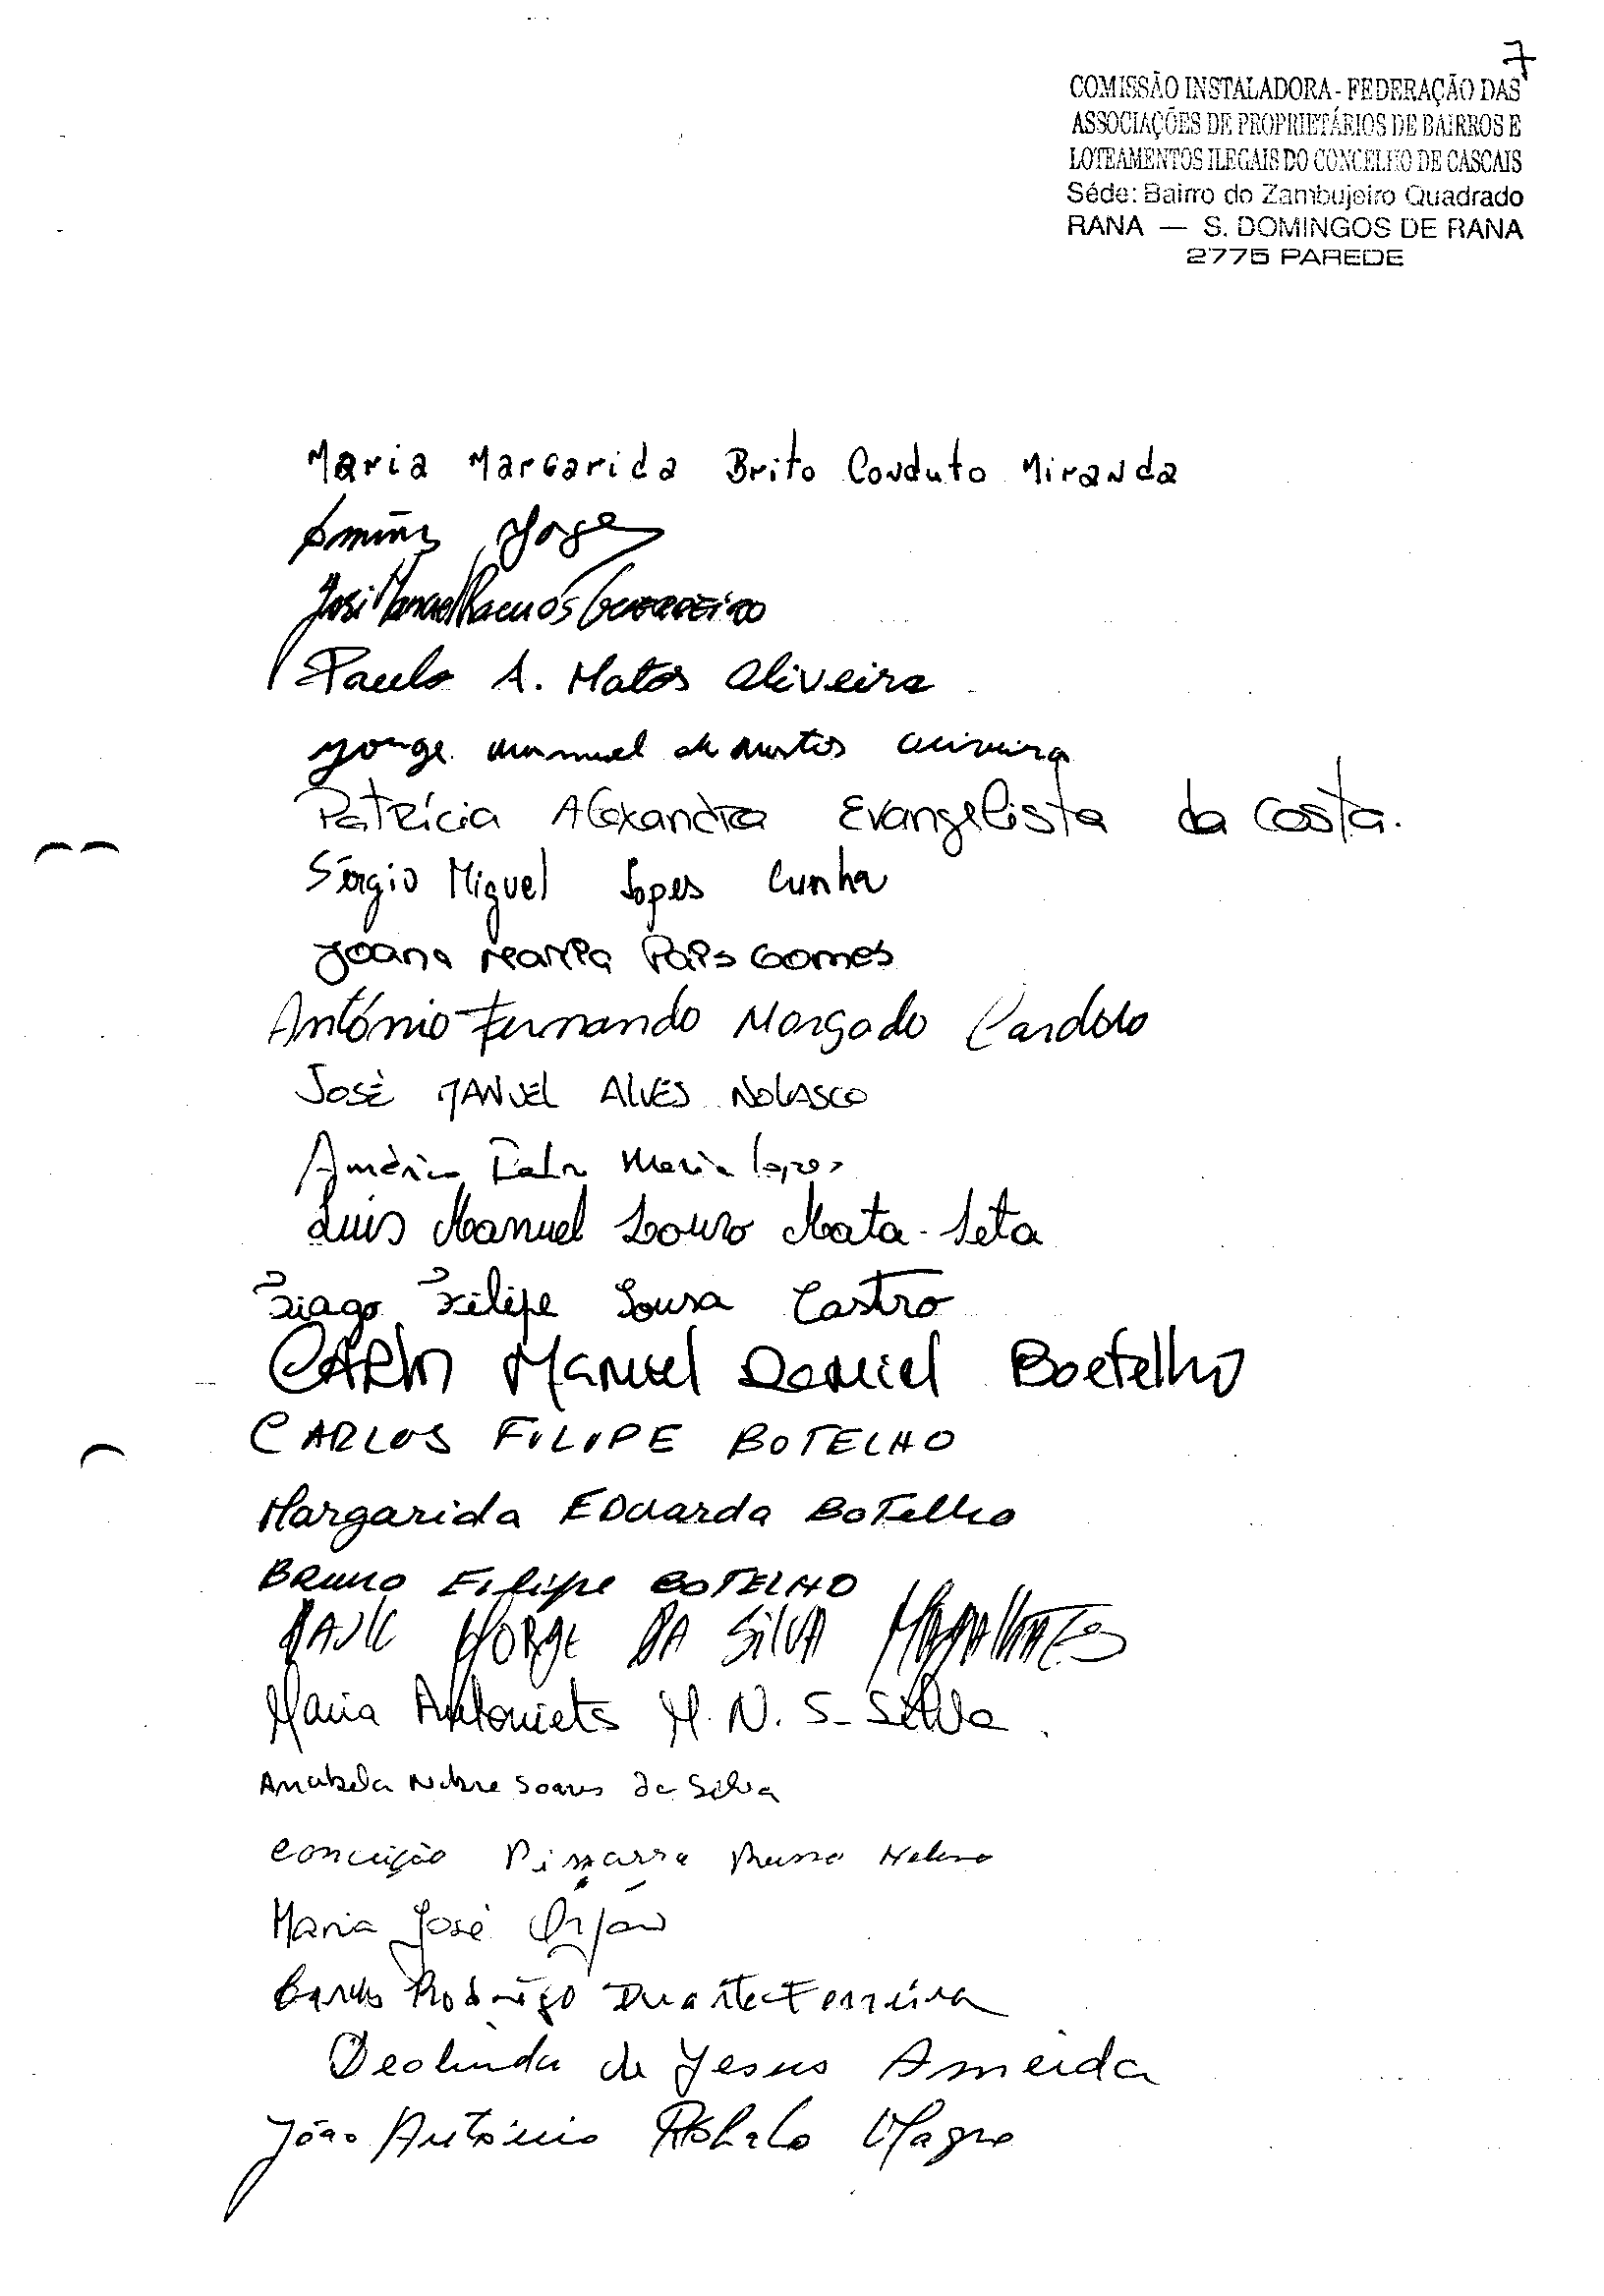 7
COMISSÃO INSTALADORA - FEDERAÇÃO DAS
ASSOCIAÇÕES DE PROPRIETÁRIOS DE BAIRROS E
LOTEAMENTOS ILEGAIS DO CONCELHO DE CASCAIS
Séde: Bairro do Zambujeiro Quadrado
RANA — S. DOMINGOS DE RANA
2775 PAREDE
Maria Margarida Brito Conduto Miranda
Jorge
José Manuel Ramos Guerreiro
Paulo A. Matos Oliveira
Jorge Manuel de Matos Oliveira
Patrícia Alexandra Evangelista da Costa.
Sérgio Miguel Lopes Cunha
Joana Maria Pais Gomes
António Fernando Morgado Cardoso
José MANUEL ALVES NOLASCO
Américo Maria Lopes
Luis Manuel Louro Mata-Seta
Tiago Filipe Sousa Castro
CARlos Manuel Daniel Boetelho
CARLOS FILIPE BOTELHO
Margarida EDuarda BoTelho
BRuno Filipe BOTELHO
PAUL JORGE DA SilvA MAGALHAES
Maria Antonieta M. N. S- Silva.
Anabela Nobre Soares da Silva
Conceição Pissarra Russo
Maria José
Carlos Rodrigo Duarte Ferreira
Deolinda de Jesus Ameida
João António Magro